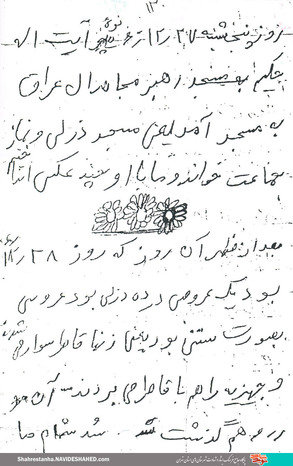 ۱۳
روز پنجشنبه ۲۷/۱۲/ آیت اله
حکیم به مسجد رهبر مجاهدان عراق
به مسجد آمد یعنی مسجد دزلی و نماز
جماعت خواند و ما با او چند عکس
بعد از ظهر آن روز که روز ۲۸/۱۲/
بود یک عروسی در ده دزلی بود عروسی
بصورت سنتی بود یعنی زنها قاطر سوار
و جهزیه را هم با قاطر می بردند آن
روز هم گذشت شد شام ما
Shahrestanha.NAVIDESHAHED.com